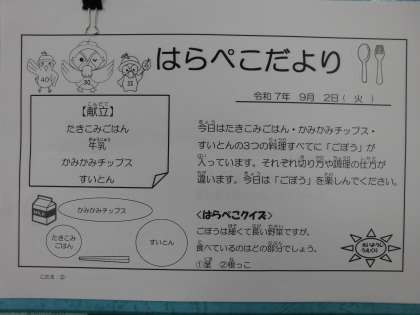 はらぺこだより
令和7年 9月 2日( 火 )
【献立】
たきこみごはん
牛乳
かみかみチップス
すいとん
今日はたきこみごはん・かみかみチップス・
すいとんの3つの料理すべてに「ごぼう」が
入っています。それぞれ切り方や調理の仕方が
違います。今日は「ごぼう」を楽しんでください。
かみかみチップス
たきこみ
ごはん
すいとん
<はらぺこクイズ>
ごぼうは細くて長い野菜ですが、
食べているのはどの部分でしょう。
①葉 ②根っこ